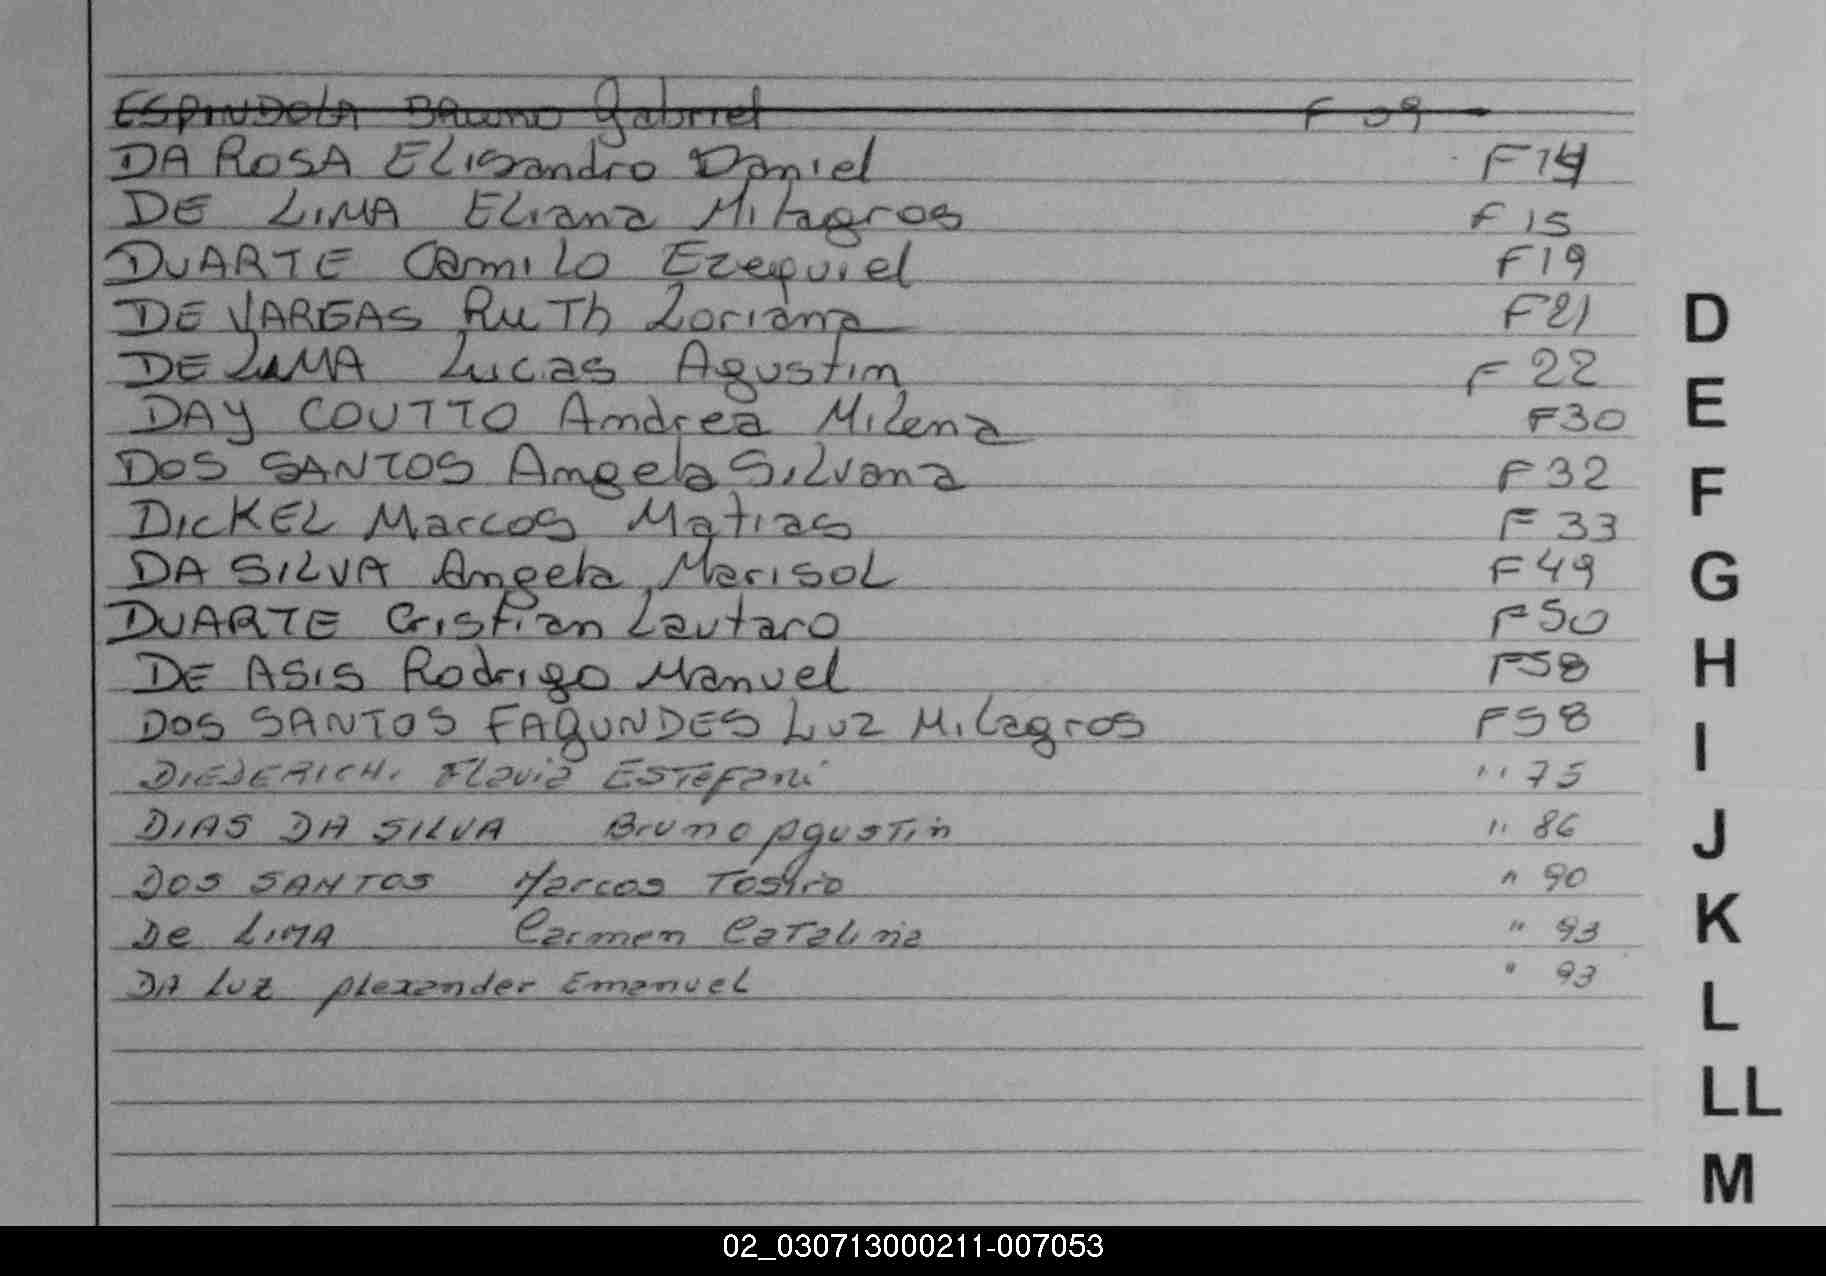 ESPINDOLA Bruno Gabriel F 09
DA ROSA ELisandro Daniel F14
DE LIMA ELiana Milagros F 15
DUARTE Camilo Ezequiel F19
DE VARGAS RuTh Loriana F21
DE LIMA Lucas Agustin F 22
DAY COUTTO Andrea Milena F30
DOS SANTOS Angela SiLvana F 32
DICKEL Marcos Matias F 33
DA SILVA Angela MarisoL F 49
DUARTE Cristian Lautaro F50
DE ASIS Rodrigo Manuel F58
DOS SANTOS FAgUNDES Luz Milagros F58
DIEDERICH. Flavia ESTeFani " 75
DIAS DA SILVA Bruno AgusTin " 86
DOS SANTOS Marcos " 90
De LIMA Carmen CaTalina " 93
DA LUZ Alexander EmanueL " 93
D
E
F
G
H
I
J
K
L
LL
M
02_030713000211-007053